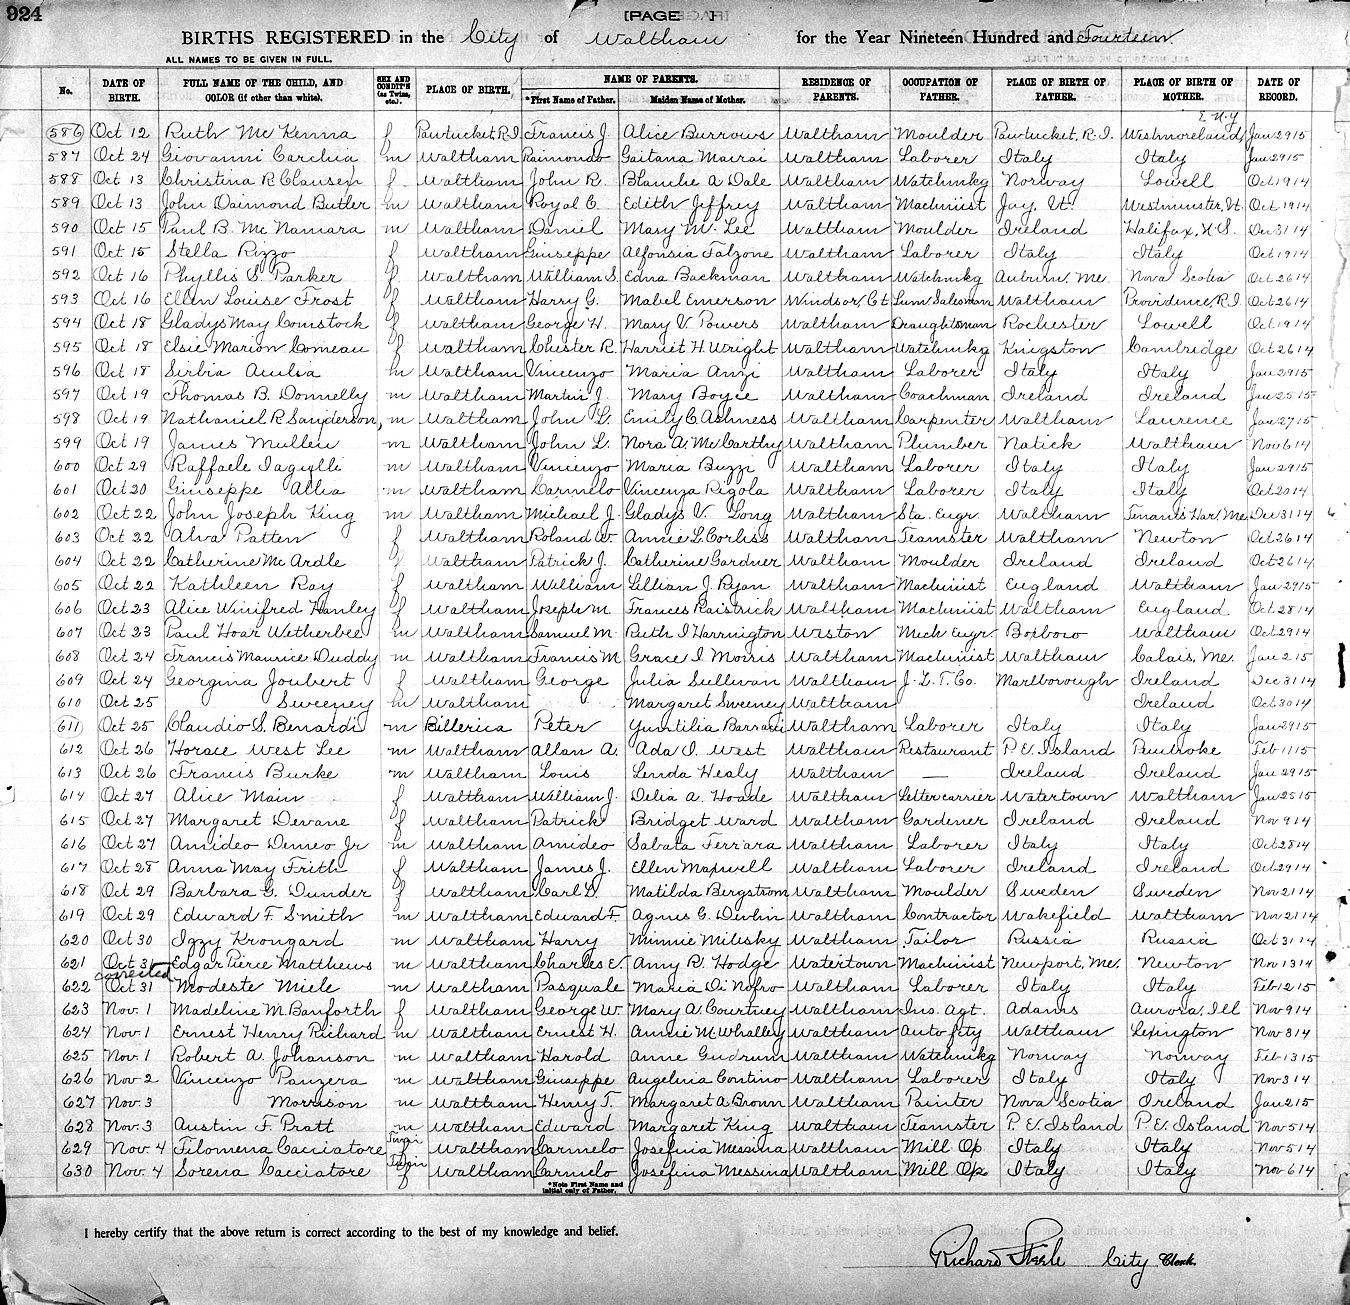 924
[PAGE ]
BIRTHS REGISTERED in the City of Waltham for the Year Nineteen Hundred and Fourteen
ALL NAMES TO BE GIVEN IN FULL.
No. DATE OF BIRTH. FULL NAME OF THE CHILD, AND COLOR (if other than white). SEX AND CONDIT'N (as Twins, etc.) PLACE OF BIRTH. NAME OF PARENTS. *First Name of Father. Maiden Name of Mother. RESIDENCE OF PARENTS. OCCUPATION OF FATHER. PLACE OF BIRTH OF FATHER. PLACE OF BIRTH OF MOTHER. DATE OF RECORD.
586 Oct 12 Ruth McKenna f Pawtucket R.I. Francis J. Alice Burrows Waltham Moulder Pawtucket, R.I. Westmoreland, N.Y Jan 29 15
587 Oct 24 Giovanni Carchia m Waltham Raimondo Gaitana Mairai Waltham Laborer Italy Italy Jan 29 15
588 Oct 13 Christina R Clausen f Waltham John R. Blanche A Dale Waltham Watchmkg Norway Lowell Oct 19 14
589 Oct 13 John Daimond Butler m Waltham Royal E. Edith Jeffrey Waltham Machinist Jay, Vt. Westminster, Vt. Oct 19 14
590 Oct 15 Paul B. McNamara m Waltham Daniel Mary M. Lee Waltham Moulder Ireland Halifax, N.S. Dec 31 14
591 Oct 15 Stella Rizzo f Waltham Giuseppe Alfonsia Falzone Waltham Laborer Italy Italy Oct 19 14
592 Oct 16 Phyllis S. Parker f Waltham William S. Edna Backman Waltham Watchmkg Auburn, Me. Nova Scotia Oct 26 14
593 Oct 16 Ellen Louise Frost f Waltham Harry G. Mabel Emerson Windsor, Ct Lum. Salesman Waltham Providence, R.I Oct 26 14
594 Oct 18 Gladys May Comstock f Waltham George H. Mary V Powers Waltham Draughtsman Rochester Lowell Oct 19 14
595 Oct 18 Elsie Marion Comeau f Waltham Chester R. Harriet H. Wright Waltham Watchmkg Kingston Cambridge Oct 26 14
596 Oct 18 Sirbia Aulsa m Waltham Vincenzo Maria Anzi Waltham Laborer Italy Italy Jan 29 15
597 Oct 19 Thomas B. Donnelly m Waltham Martin J. Mary Boyce Waltham Coachman Ireland Ireland Jan 25 15
598 Oct 19 Nathaniel R Sanderson, m Waltham John G. Emily C Ashness Waltham Carpenter Waltham Laurence Jan 27 15
599 Oct 19 James Mullen m Waltham John L. Nora A. McCarthy Waltham Plumber Natick Waltham Nov 6 14
600 Oct 29 Raffaele Iagylli m Waltham Vincenzo Maria Buzzi Waltham Laborer Italy Italy Jan 29 15
601 Oct 20 Giuseppe Allia m Waltham Carmelo Vincenza Rigola Waltham Laborer Italy Italy Oct 20 14
602 Oct 22 John Joseph King m Waltham Michael J. Gladys V Long Waltham Sta. Engr Waltham Tenants Har, Me Dec 31 14
603 Oct 22 Alva Patten f Waltham Roland W. Annie L. Corliss Waltham Teamster Waltham Newton Oct 26 14
604 Oct 22 Catherine McArdle f Waltham Patrick J. Catherine Gardner Waltham Moulder Ireland Ireland Oct 26 14
605 Oct 22 Kathleen Ray f Waltham William Lillian J. Ryan Waltham Machinist England Waltham Jan 29 15
606 Oct 23 Alice Winifred Hanley f Waltham Joseph M. Frances Raistrick Waltham Machinist Waltham England Oct 28 14
607 Oct 23 Paul Hoar Wetherbee m Waltham Samuel M. Ruth I Harrington Weston Mech Engr. Boxboro Waltham Oct 29 14
608 Oct 24 Francis Maurice Duddy m Waltham Francis M Grace I Morris Waltham Machinist Waltham Calais, Me. Jan 2 15
609 Oct 24 Georgina Joubert f Waltham George Julia Sullivan Waltham J.L.T. Co. Marlborough Ireland Dec 31 14
610 Oct 25 Sweeney m Waltham Margaret Sweeney Waltham Ireland Oct 30 14
611 Oct 25 Claudio S. Benardi m Billerica Peter Waltham Laborer Italy Italy Jan 29 15
612 Oct 26 Horace West Lee m Waltham Allan A. Ada I. West Waltham Restaurant P.E. Island Pembroke Feb 11 15
613 Oct 26 Francis Burke m Waltham Louis Linda Healy Waltham — Ireland Ireland Jan 29 15
614 Oct 27 Alice Main f Waltham William J. Delia A. Hoade Waltham Letter carrier Watertown Waltham Jan 25 15
615 Oct 27 Margaret Devane f Waltham Patrick Bridget Ward Waltham Gardener Ireland Ireland Nov 9 14
616 Oct 27 Amideo Demeo Jr m Waltham Amideo Sabata Ferrara Waltham Laborer Italy Italy Oct 28 14
617 Oct 28 Anna May Frith f Waltham James J. Ellen Maxwell Waltham Laborer Ireland Ireland Oct 29 14
618 Oct 29 Barbara G. Dunder f Waltham Carl D. Matilda Bergstrom Waltham Moulder Sweden Sweden Nov 21 14
619 Oct 29 Edward F Smith m Waltham Edward F Agnes G. Devlin Waltham Contractor Wakefield Waltham Nov 21 14
620 Oct 30 Izzy Krongard m Waltham Harry Minnie Milesky Waltham Tailor Russia Russia Oct 31 14
621 Oct 31 Edgar Pierce Matthews m Waltham Charles E. Amy R. Hodge Watertown Machinist Newport, Me. Newton Nov 13 14
corrected
622 Oct 31 Modeste Miele m Waltham Pasquale Maria DiNofro Waltham Laborer Italy Italy Feb 12 15
623 Nov. 1 Madeline M Banforth f Waltham George W. Mary A. Courtney Waltham Ins. Agt. Adams Aurora, Ill Nov 9 14
624 Nov. 1 Ernest Henry Richard m Waltham Ernest H. Annie M. Whalley Waltham Auto fcty Waltham Lexington Nov 3 14
625 Nov. 1 Robert A. Johanson m Waltham Harold Anne Gudrum Waltham Watchmkg Norway Norway Feb 13 15
626 Nov 2 Vincenzo Panzera m Waltham Giuseppe Angelina Contino Waltham Laborer Italy Italy Nov 3 14
627 Nov. 3 Morrison m Waltham Henry T. Margaret A Brown Waltham Painter Nova Scotia Ireland Jan 2 15
628 Nov. 3 Austin F. Pratt m Waltham Edward Margaret King Waltham Teamster P.E. Island P.E. Island Nov 5 14
629 Nov. 4 Filomena Cacciatore Twin f Waltham Carmelo Josefina Messina Waltham Mill Op Italy Italy Nov 5 14
630 Nov. 4 Sorena Cacciatore Twin f Waltham Carmelo Josefina Messina Waltham Mill Op Italy Italy Nov 6 14
*Note First Name and initial only of Father.
I hereby certify that the above return is correct according to the best of my knowledge and belief.
Richard Steele City Clerk.